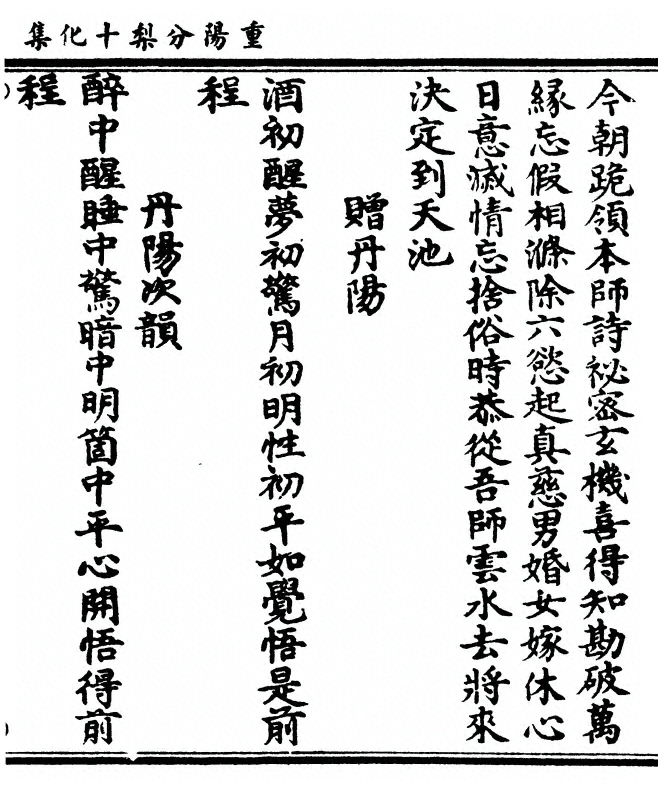 重陽分梨十化集
今朝跪領本師詩祕密玄機喜得知勘破萬
緣忘假相滌除六慾起真慈男婚女嫁休心
日意滅情忘捨俗時恭從吾師雲水去將來
決定到天池
贈丹陽
酒初醒夢初驚月初明性初平如覺悟是前
程
丹陽次韻
醉中醒睡中驚暗中明箇中平心開悟得前
程